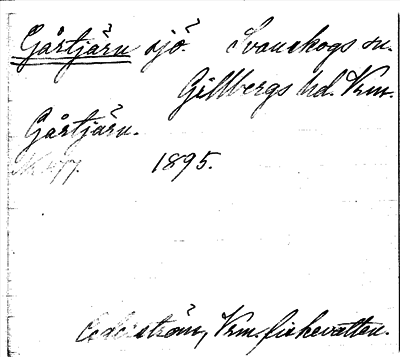 Gårtjärn sjö. Svanskogs sn.
Gillbergs hd. Vrm.
Gårtjärn.
1895.
Cederström, Vrm. fiskevatten.